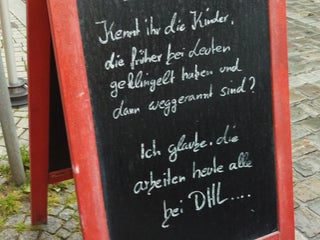 Kennt ihr die Kinder,
die früher bei Leuten
geklingelt haben und
dann weggerannt sind?
Ich glaube, die
arbeiten heute alle
bei DHL....